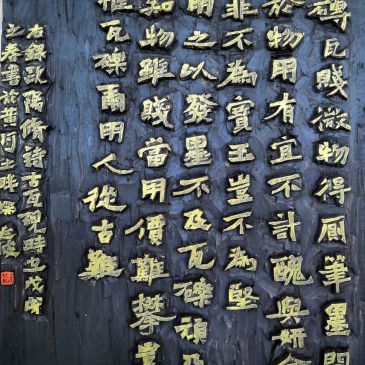 磚瓦賤微物得厠筆墨間
於物用有宜不計醜與妍金
非不為寶玉豈不為堅
用之以發墨不及瓦礫頑乃
知物雖賤當用價難攀豈
惟瓦礫爾用人從古難
右錄歐陽修詩古瓦硯時在戊戌
之春書於黃河之畔